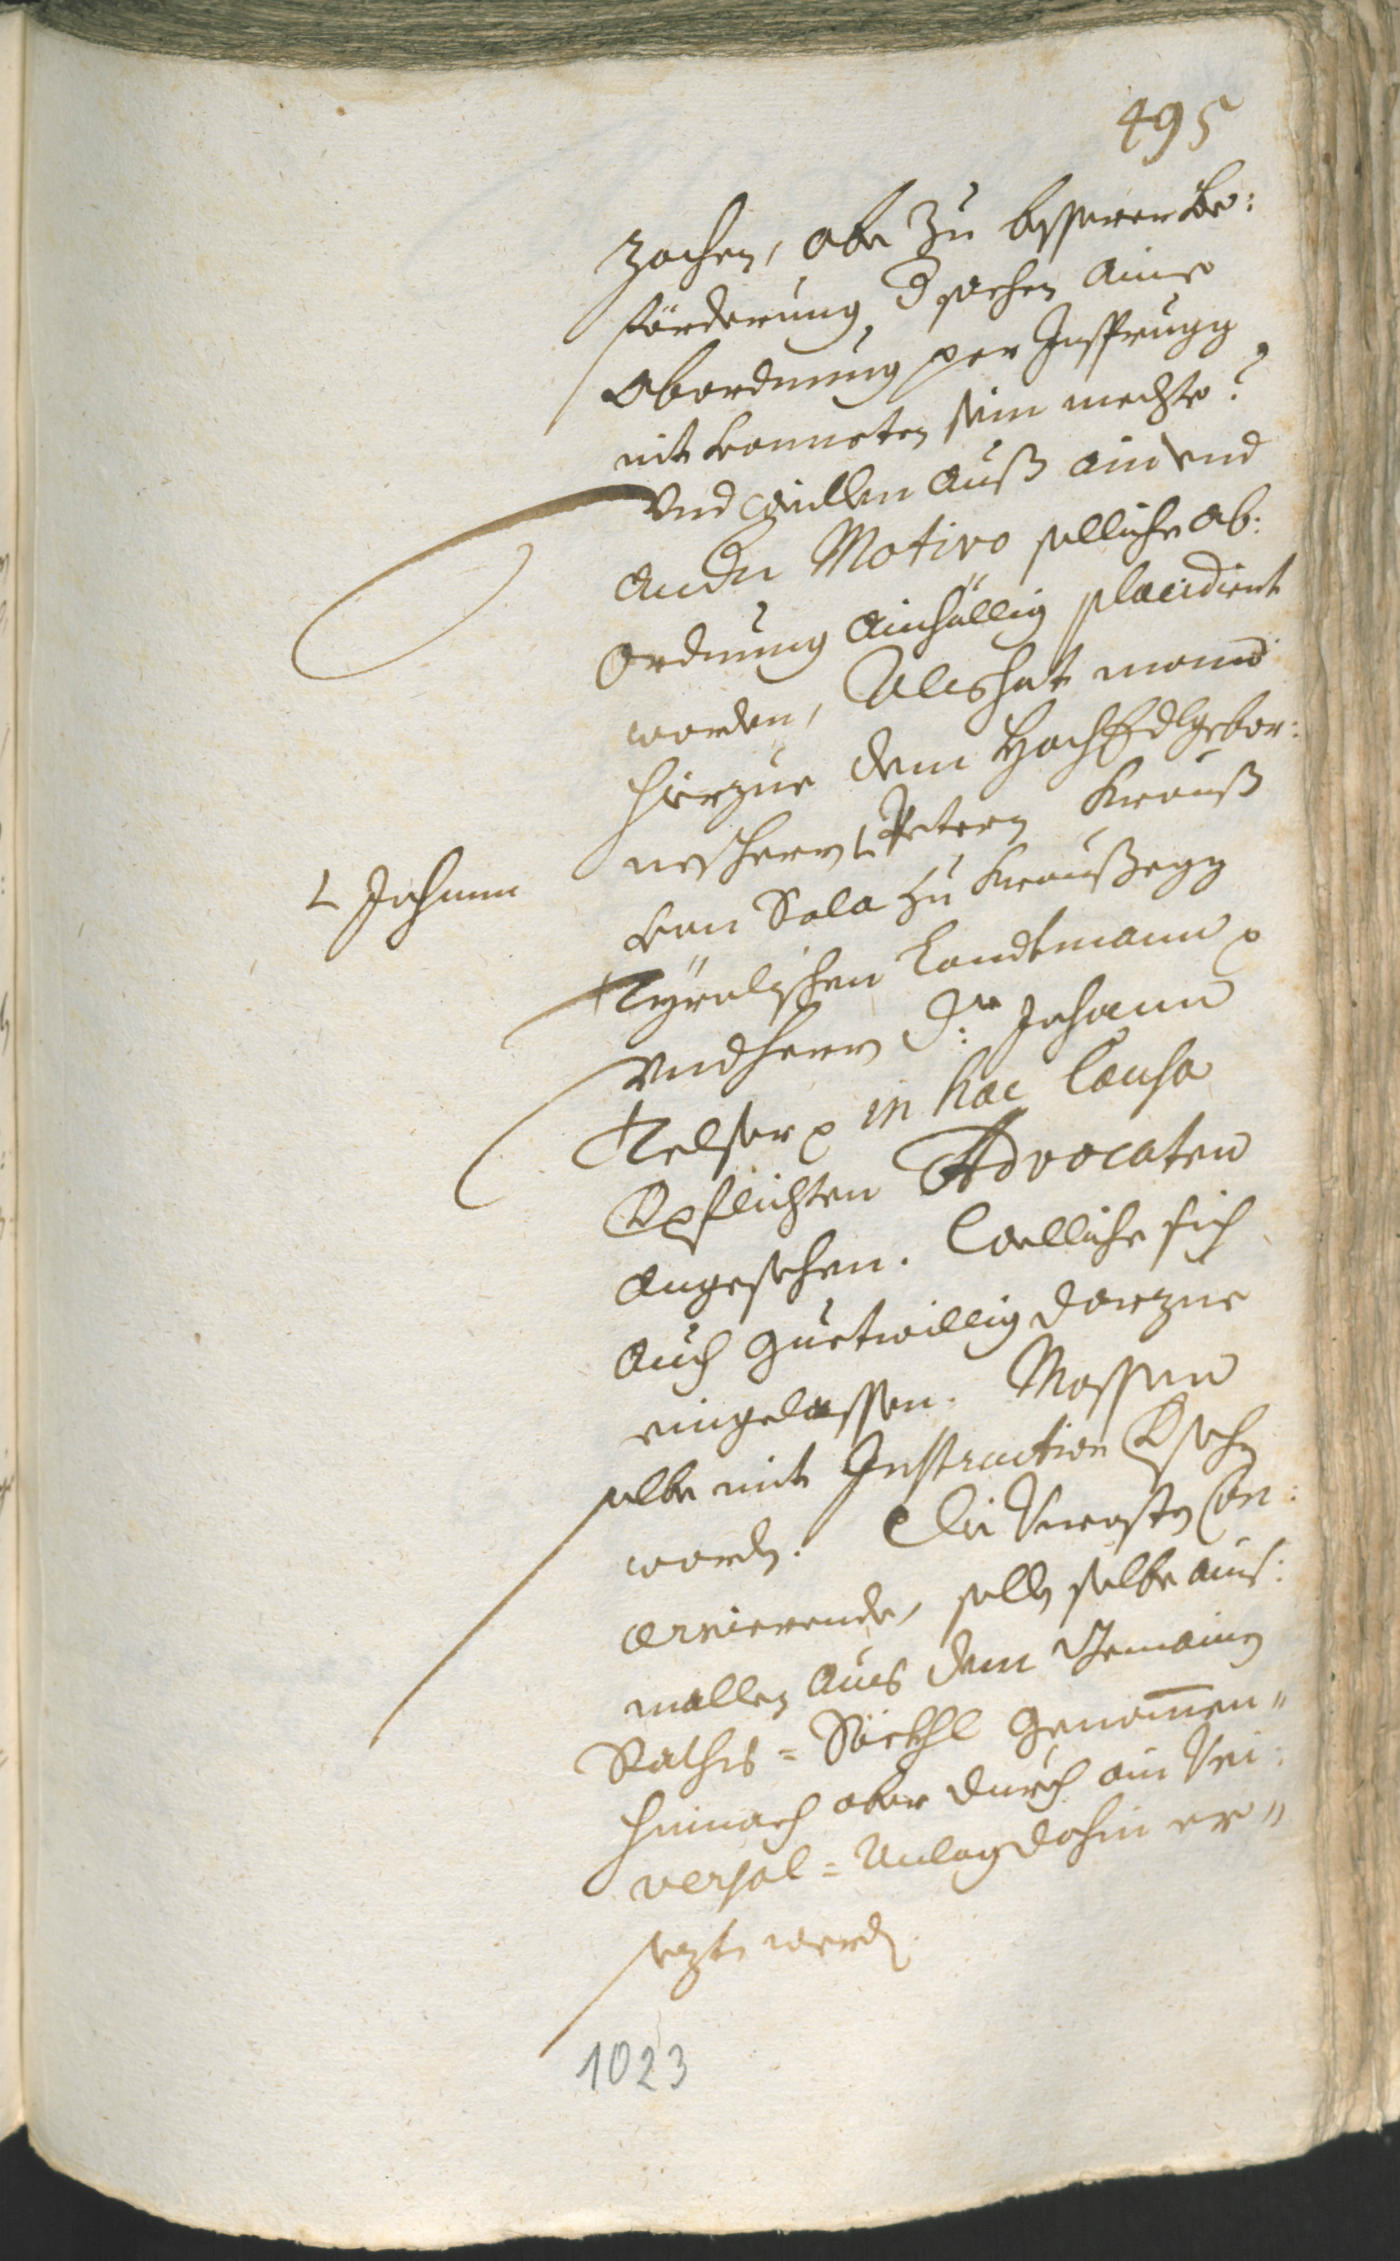 495
zochen, obe zu besserer Be:
förderung d sachen aine
Abordnung per Insprugg
nit vonneten sein mechte?
Vnd weillen auß ain vnd
andern Motivo solliche Ab:
ordnung ainhällig placidiert
worden, Alls hat mann
hierzue dem HochEdlgebor:
nen Herrn L Petern Krauß
L Johann
von Sala zu Kraußegg
Tyrolischen Landtmann
Vnd Herrn Dr. Johann
Telser in hac Causa
Verpflichten Advocaten
angesehen. Welliche sich
auch guetwillig darzue
eingelassen. Massen
selbe mit Instruction Versehen
worden. Die Vncosten Con:
cernierende, sollen selbe ains:
mallen aus dem Gemainen
Raths=Säckhl genommen"
hinnach aber durch ain Vni:
versal=Anlag dahin er"
sezt werden.
1023